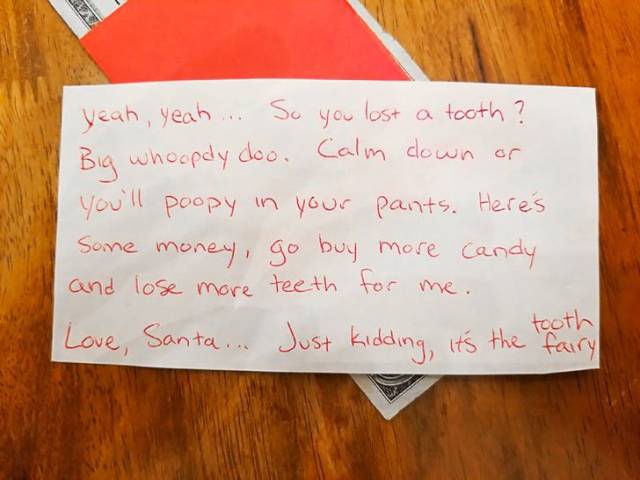 yeah, yeah... So you lost a tooth?
Big whoopdy doo. Calm down or
you'll poopy in your pants. Here's
some money, go buy more candy
and lose more teeth for me.
Love, Santa... Just kidding, it's the tooth fairy